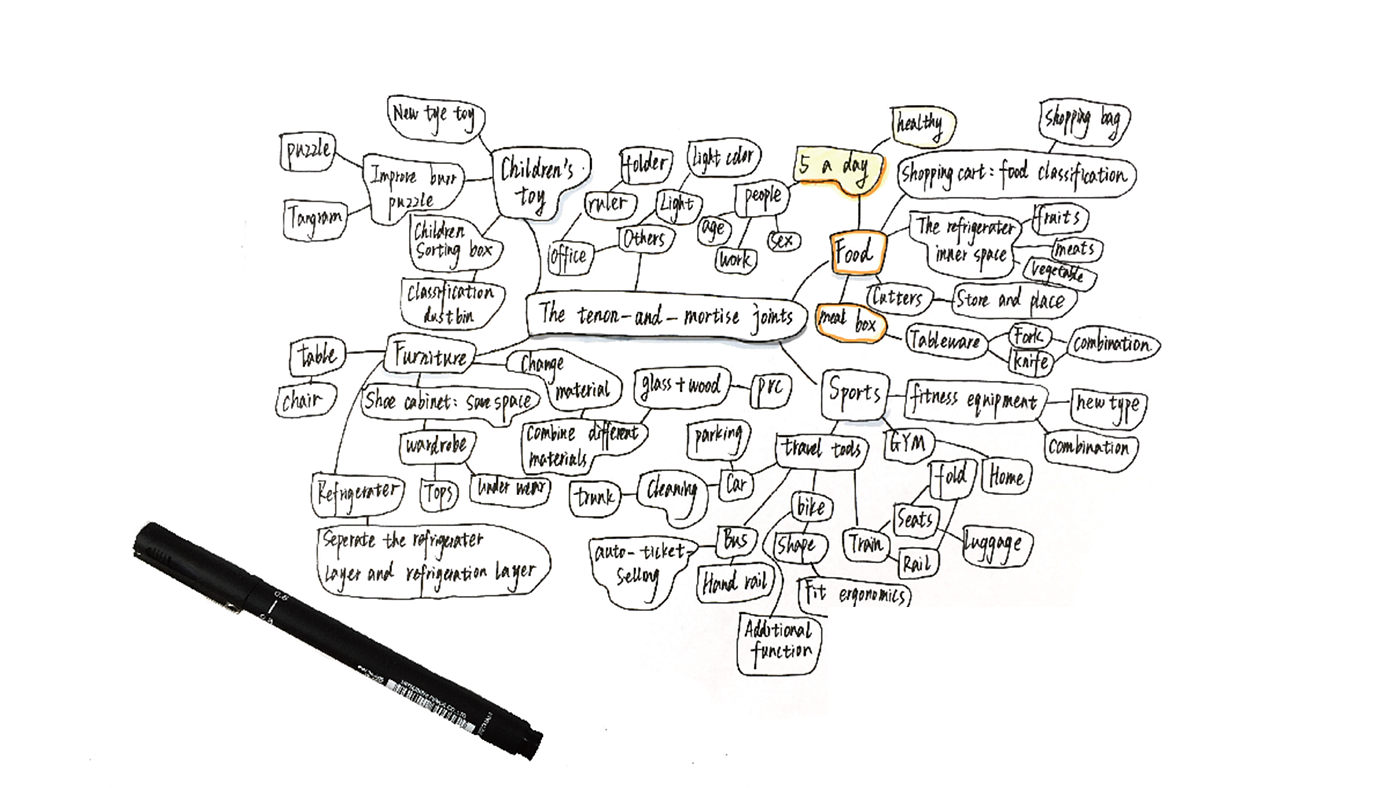 New tye toy
puzzle
Improve burr
puzzle
Tangram
Children's
toy
Children
Sorting box
Classification
dustbin
folder
Light color
ruler
Light
office
Others
people
age
work
sex
5 a day
healthy
Shopping bag
Shopping cart: food classification
Food
The refrigerater
inner space
fraits
meats
vegetable
Cutters
Store and place
meal box
Tableware
Fork
knife
combination
The tenon-and-mortise joints
Furniture
table
chair
Change
material
Shoe cabinet: save space
glass+wood
prc
Combine different
materials
wardrobe
Tops
under wear
Refrigerater
Seperate the refrigerater
layer and refrigeration layer
Sports
fitness equipment
new type
combination
GYM
Home
travel tools
parking
Car
Cleaning
trunk
bike
Shape
Fit ergonomics
Additional
function
Bus
auto-ticket-
selling
Hand rail
Train
Seats
fold
Rail
Luggage
0.8
0.8